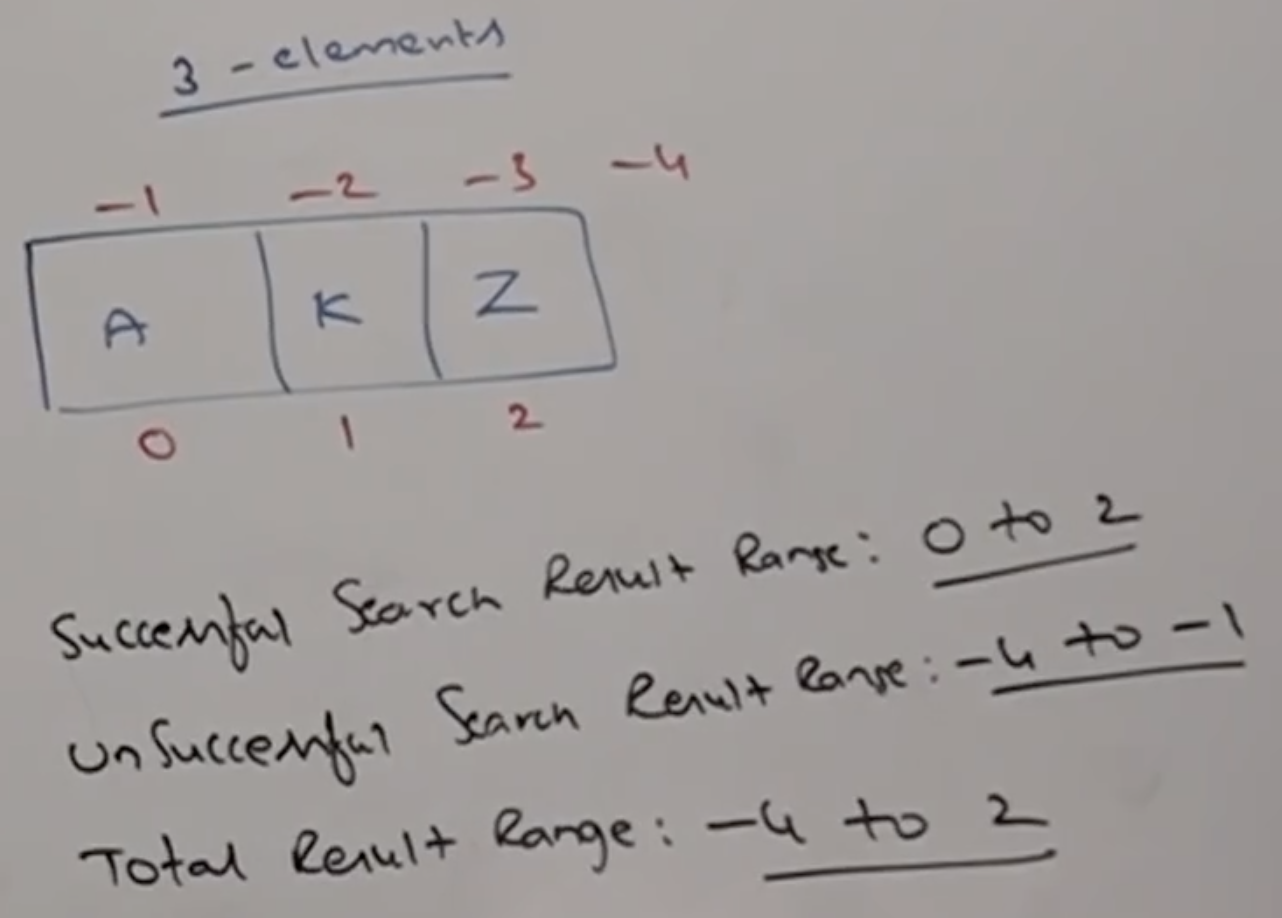 3 - elements
-1 -2 -3 -4
A K Z
0 1 2
Successful Search Result Range: 0 to 2
UnSuccessful Search Result Range: -4 to -1
Total Result Range: -4 to 2